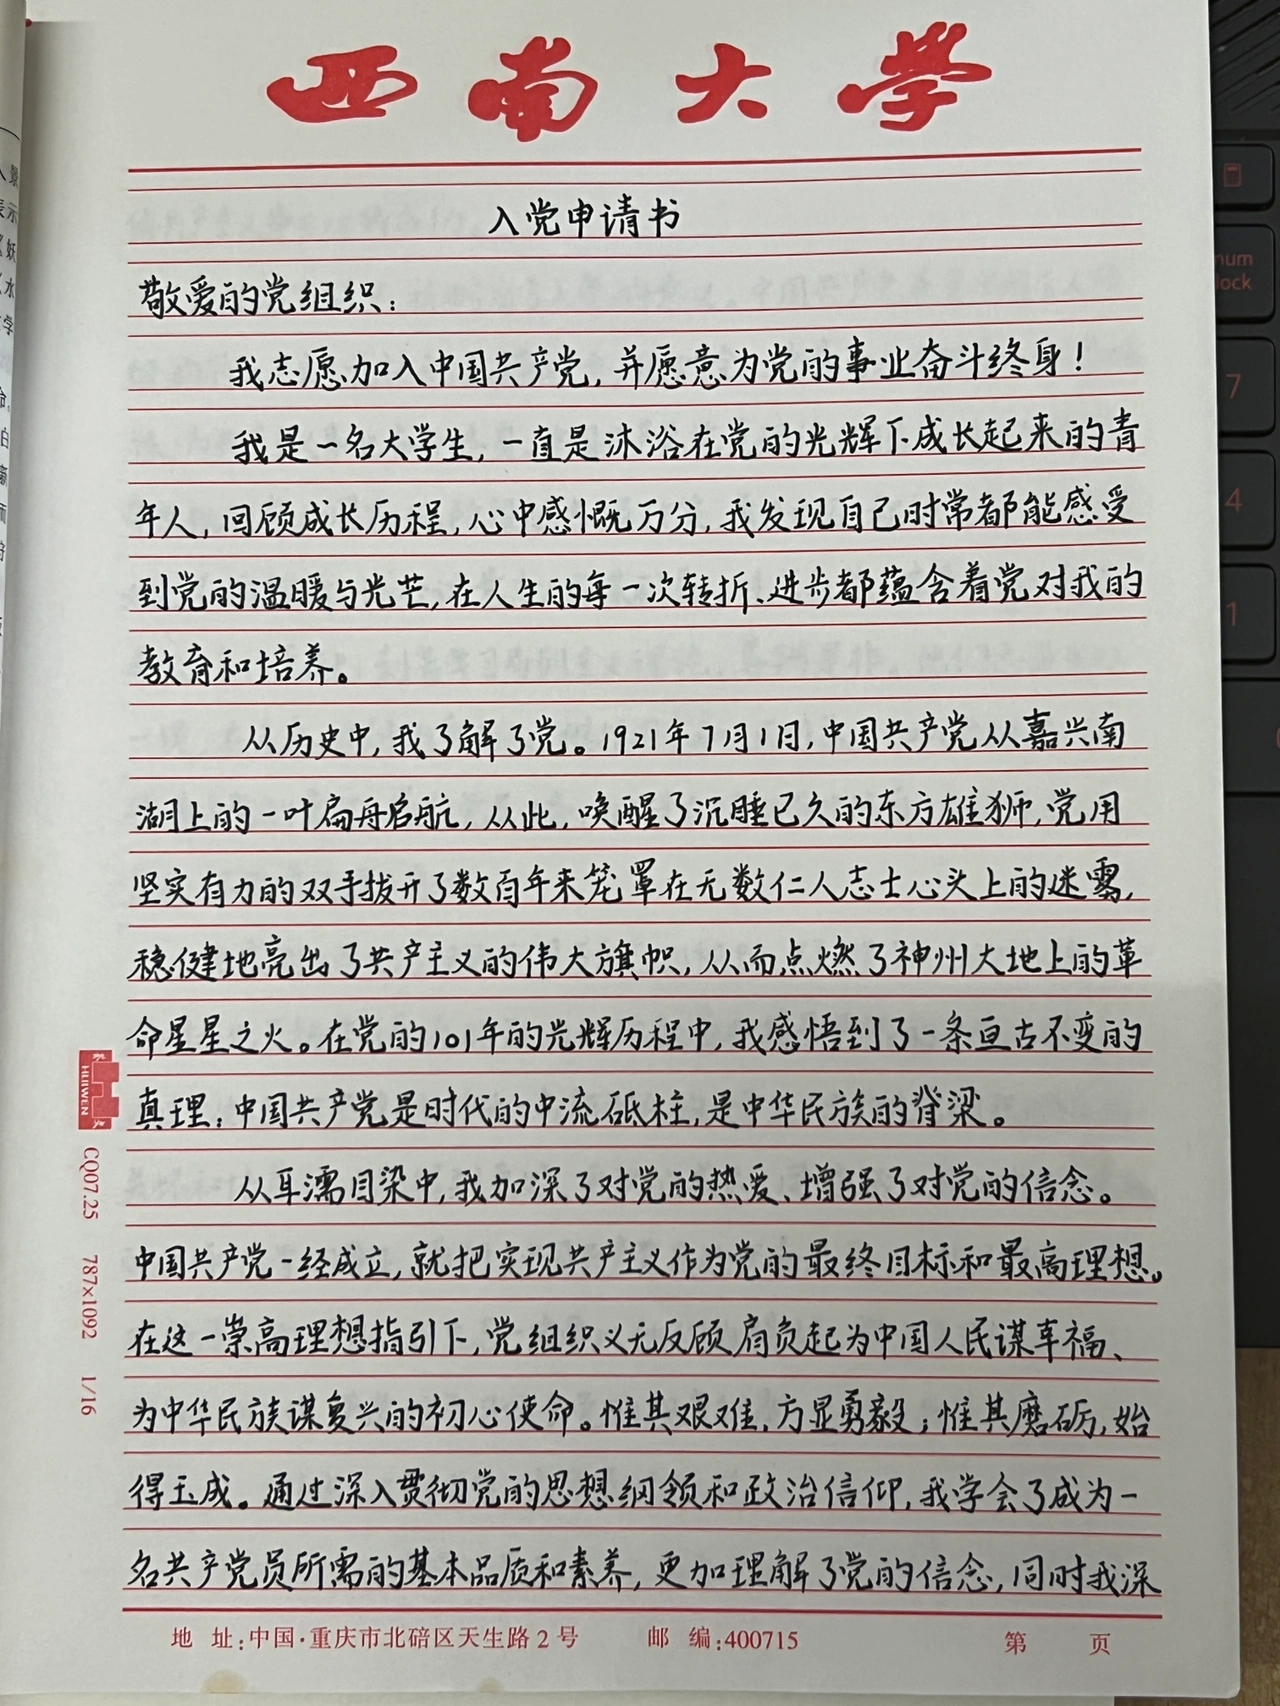 西南大学
入党申请书
敬爱的党组织：
我志愿加入中国共产党，并愿意为党的事业奋斗终身！
我是一名大学生，一直是沐浴在党的光辉下成长起来的青
年人，回顾成长历程，心中感慨万分，我发现自己时常都能感受
到党的温暖与光芒，在人生的每一次转折、进步都蕴含着党对我的
教育和培养。
从历史中，我了解了党。1921年7月1日，中国共产党从嘉兴南
湖上的一叶扁舟启航，从此，唤醒了沉睡已久的东方雄狮，党用
坚实有力的双手拔开了数百年来笼罩在无数仁人志士心头上的迷雾，
稳健地亮出了共产主义的伟大旗帜，从而点燃了神州大地上的革
命星星之火。在党的101年的光辉历程中，我感悟到了一条亘古不变的
真理：中国共产党是时代的中流砥柱，是中华民族的脊梁。
从耳濡目染中，我加深了对党的热爱、增强了对党的信念。
中国共产党一经成立，就把实现共产主义作为党的最终目标和最高理想。
在这一崇高理想指引下，党组织义无反顾肩负起为中国人民谋幸福、
为中华民族谋复兴的初心使命。惟其艰难，方显勇毅；惟其磨砺，始
得玉成。通过深入贯彻党的思想纲领和政治信仰，我学会了成为一
名共产党员所需的基本品质和素养，更加理解了党的信念，同时我深
地 址：中国·重庆市北碚区天生路2号 邮 编：400715 第 页
HUIWEN
CQ07.25 787×1092 1/16
num
lock
7
4
1